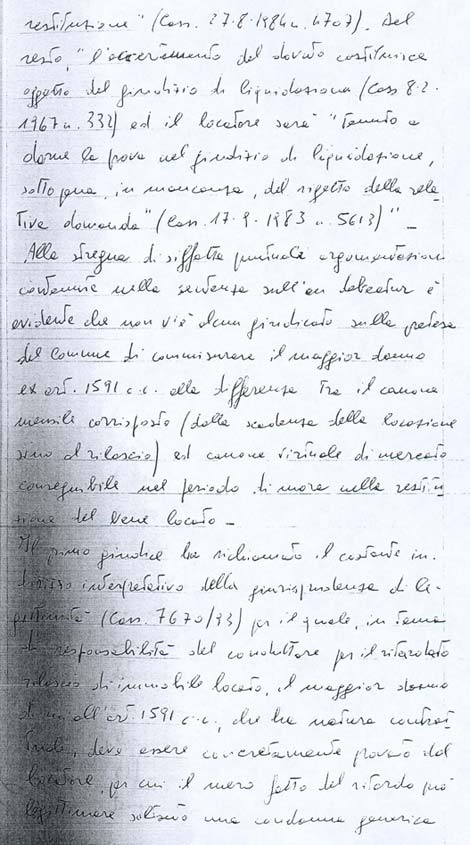 restituzione" (Cass. 27.8.1984 n. 4707). Del
resto, "l'accertamento del dovuto costituisce
oggetto del giudizio di liquidazione (Cass 8.2.
1967 n. 332) ed il locatore sarà "tenuto a
darne la prova nel giudizio di liquidazione,
sotto pena, in mancanza, del rigetto della rela
tiva domanda" (Cass. 17.9.1983 n. 5613)" _
Alla stregua di siffatte puntuali argomentazioni
contenute nella sentenza sull'an debeatur è
evidente che non v'è alcun giudicato sulla pretesa
del Comune di commisurare il maggior danno
ex art. 1591 c.c. alla differenza tra il canone
mensile corrisposto (dalla scadenza della locazione
sino al rilascio) ed canone virtuale di mercato
conseguibile nel periodo di mora nella restitu
zione del bene locato _
Il primo giudice ha richiamato il costante in-
dirizzo interpretativo della giurisprudenza di le-
gittimità (Cass. 7670/93) per il quale, in tema
di responsabilità del conduttore per il ritardato
rilascio di immobile locato, il maggior danno
di cui all'art. 1591 c.c., che ha natura contrat
tuale, deve essere concretamente provato dal
locatore, per cui il mero fatto del ritardo può
legittimare soltanto una condanna generica